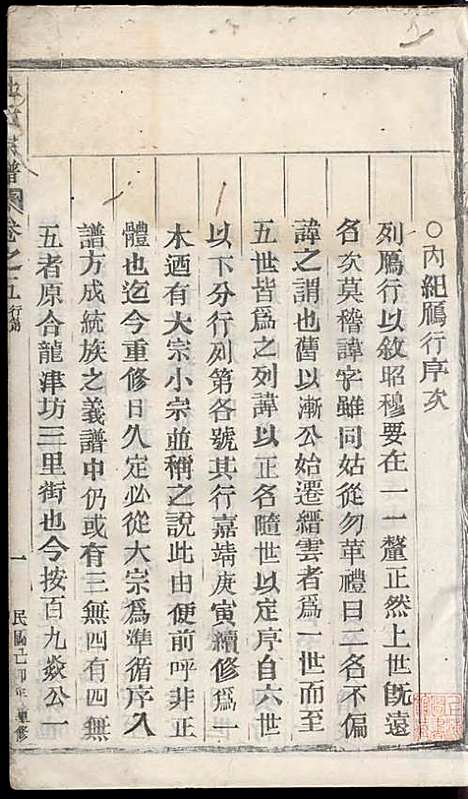 ○內紐鴈行序次
列鴈行以敘昭穆要在一一釐正然上世既遠
名次莫稽諱字雖同姑從勿革禮曰二名不偏
諱之謂也舊以漸公始遷縉雲者爲一世而至
五世皆爲之列諱以正名隨世以定序自六世
以下分行列第各號其行嘉靖庚寅續修爲一
木迺有大宗小宗並稱之說此由便前呼非正
體也迄今重修日久定必從大宗爲準循序入
譜方成統族之義譜中仍或有三無四有四無
五者原合龍津坊三里街也今按百九㷋公一
譜 卷之五 行第 一 民國己卯年重修